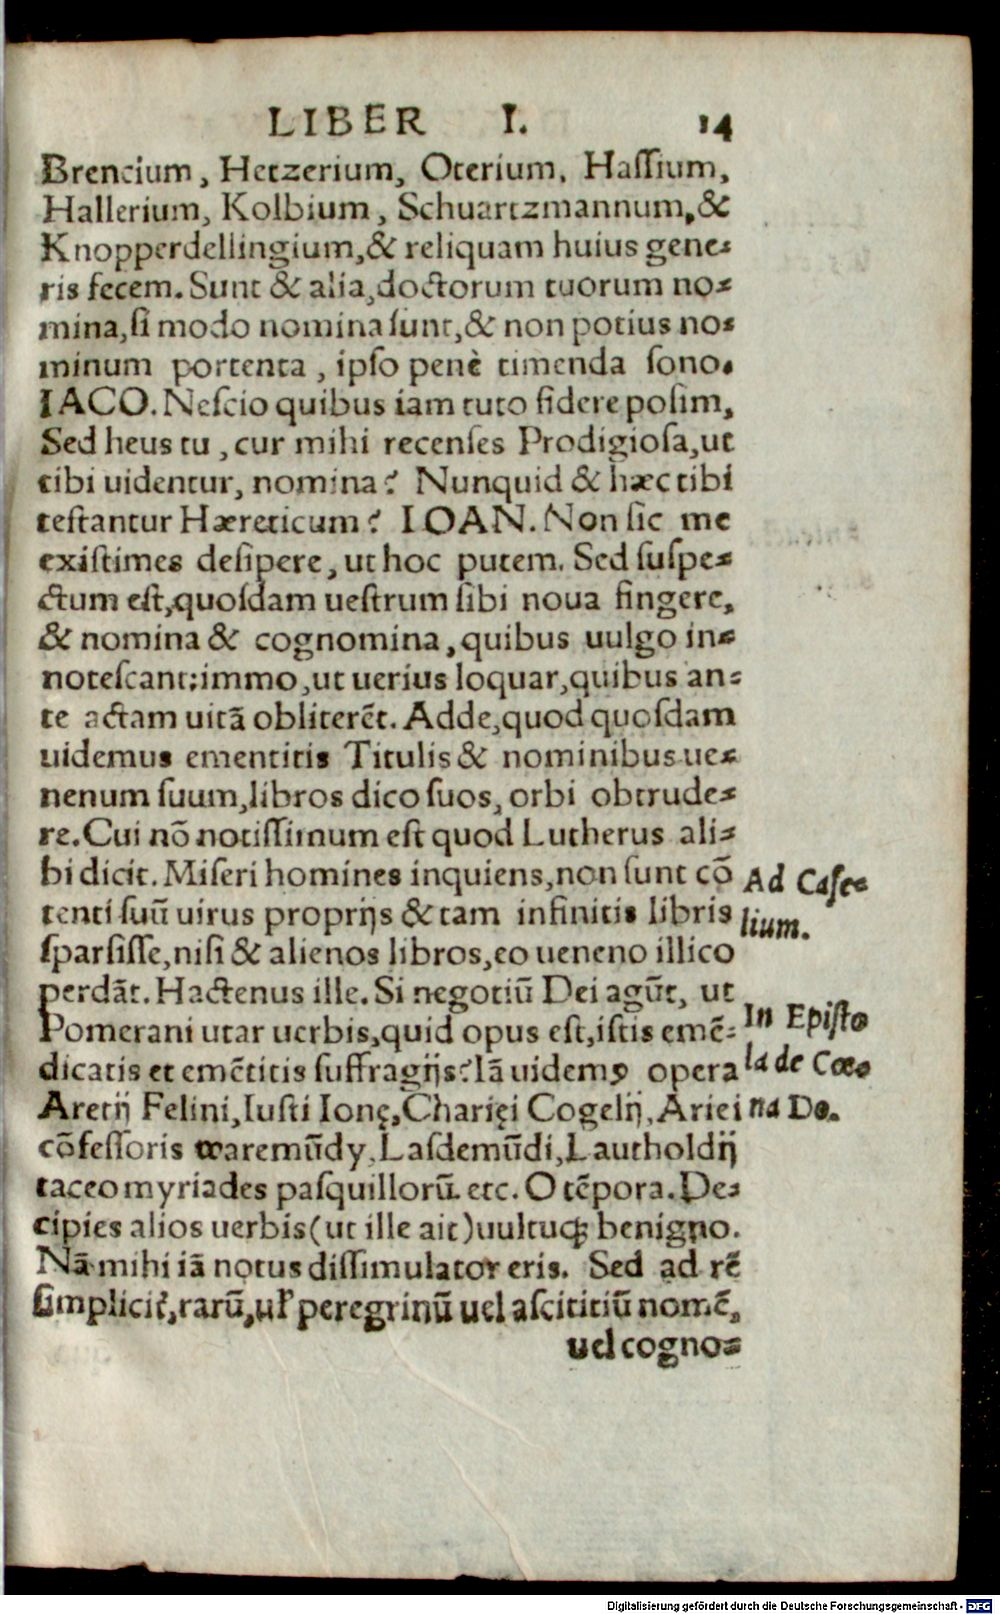 LIBER I. 14
Brencium, Hetzerium, Oterium, Haſſium,
Hallerium, Kolbium, Schuartzmannum, &
Knopperdellingium, & reliquam huius gene⸗
ris fecem. Sunt & alia, doctorum tuorum no⸗
mina, ſi modo nomina ſunt, & non potius no⸗
minum portenta, ipſo penè timenda ſono.
IACO. Neſcio quibus iam tuto fidere poſim,
Sed heus tu, cur mihi recenſes Prodigioſa, ut
tibi uidentur, nomina? Nunquid & hæc tibi
teſtantur Hæreticum? IOAN. Non ſic me
exiſtimes deſipere, ut hoc putem. Sed ſuſpe⸗
ctum eſt, quoſdam ueſtrum ſibi noua fingere,
& nomina & cognomina, quibus uulgo in⸗
noteſcant: immo, ut uerius loquar, quibus an⸗
te actam uitã obliterẽt. Adde, quod quoſdam
uidemus ementitis Titulis & nominibus ue⸗
nenum ſuum, libros dico ſuos, orbi obtrude⸗
re. Cui nõ notiſſimum eſt quod Lutherus ali⸗
bi dicit. Miſeri homines inquiens, non ſunt cõ
tenti ſuũ uirus proprijs & tam infinitis libris
ſparſiſſe, niſi & alienos libros, eo ueneno illico
perdãt. Hactenus ille. Si negotiũ Dei agũt, ut
Pomerani utar uerbis, quid opus eſt, iſtis emẽ⸗
dicatis et emẽtitis ſuffragijs? Iã uidemꝰ opera
Aretij Felini, Iuſti Ionę, Charięi Cogelij, Ariei
cõfeſſoris waremũdy, Lasdemũdi, Lautholdij
taceo myriades paſquillorũ. etc. O tẽpora. De⸗
cipies alios uerbis (ut ille ait) uultuqꝫ benigno.
Nã mihi iã notus diſſimulator eris. Sed ad rẽ
ſimplicit̃, rarũ, uł peregrinũ uel aſcititiũ nomẽ,
uel cogno⸗
Ad Caſe⸗
lium.
In Epiſto
la de Cœ⸗
na Do.
Digitalisierung gefördert durch die Deutsche Forschungsgemeinschaft - DFG